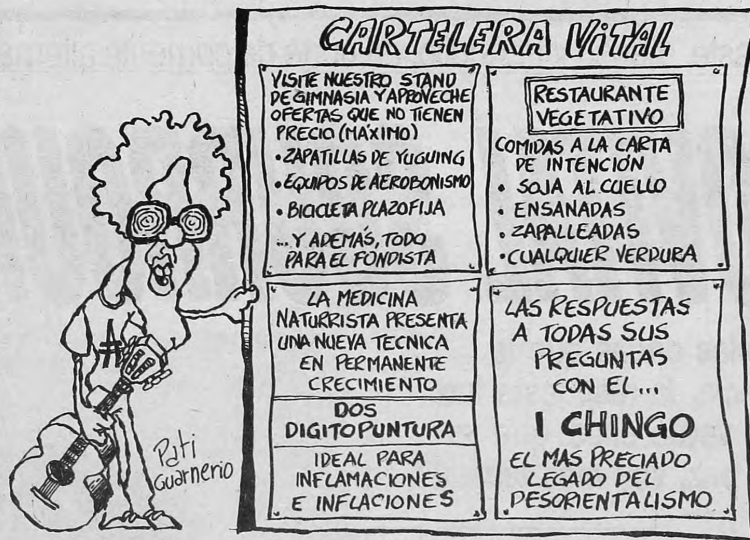 CARTELERA VITAL
VISITE NUESTRO STAND
DE GIMNASIA Y APROVECHE
OFERTAS QUE NO TIENEN
PRECIO (MÁXIMO)
• ZAPATILLAS DE YUGUING
• EQUIPOS DE AEROBONISMO
• BICICLETA PLAZOFIJA
... Y ADEMÁS, TODO
PARA EL FONDISTA
RESTAURANTE
VEGETATIVO
COMIDAS A LA CARTA
DE INTENCIÓN
• SOJA AL CUELLO
• ENSANADAS
• ZAPALLEADAS
• CUALQUIER VERDURA
LA MEDICINA
NATURRISTA PRESENTA
UNA NUEVA TECNICA
EN PERMANENTE
CRECIMIENTO
DOS
DIGITOPUNTURA
IDEAL PARA
INFLAMACIONES
E INFLACIONES
LAS RESPUESTAS
A TODAS SUS
PREGUNTAS
CON EL...
I CHINGO
EL MAS PRECIADO
LEGADO DEL
DESORIENTALISMO
Pati
Guarnerio